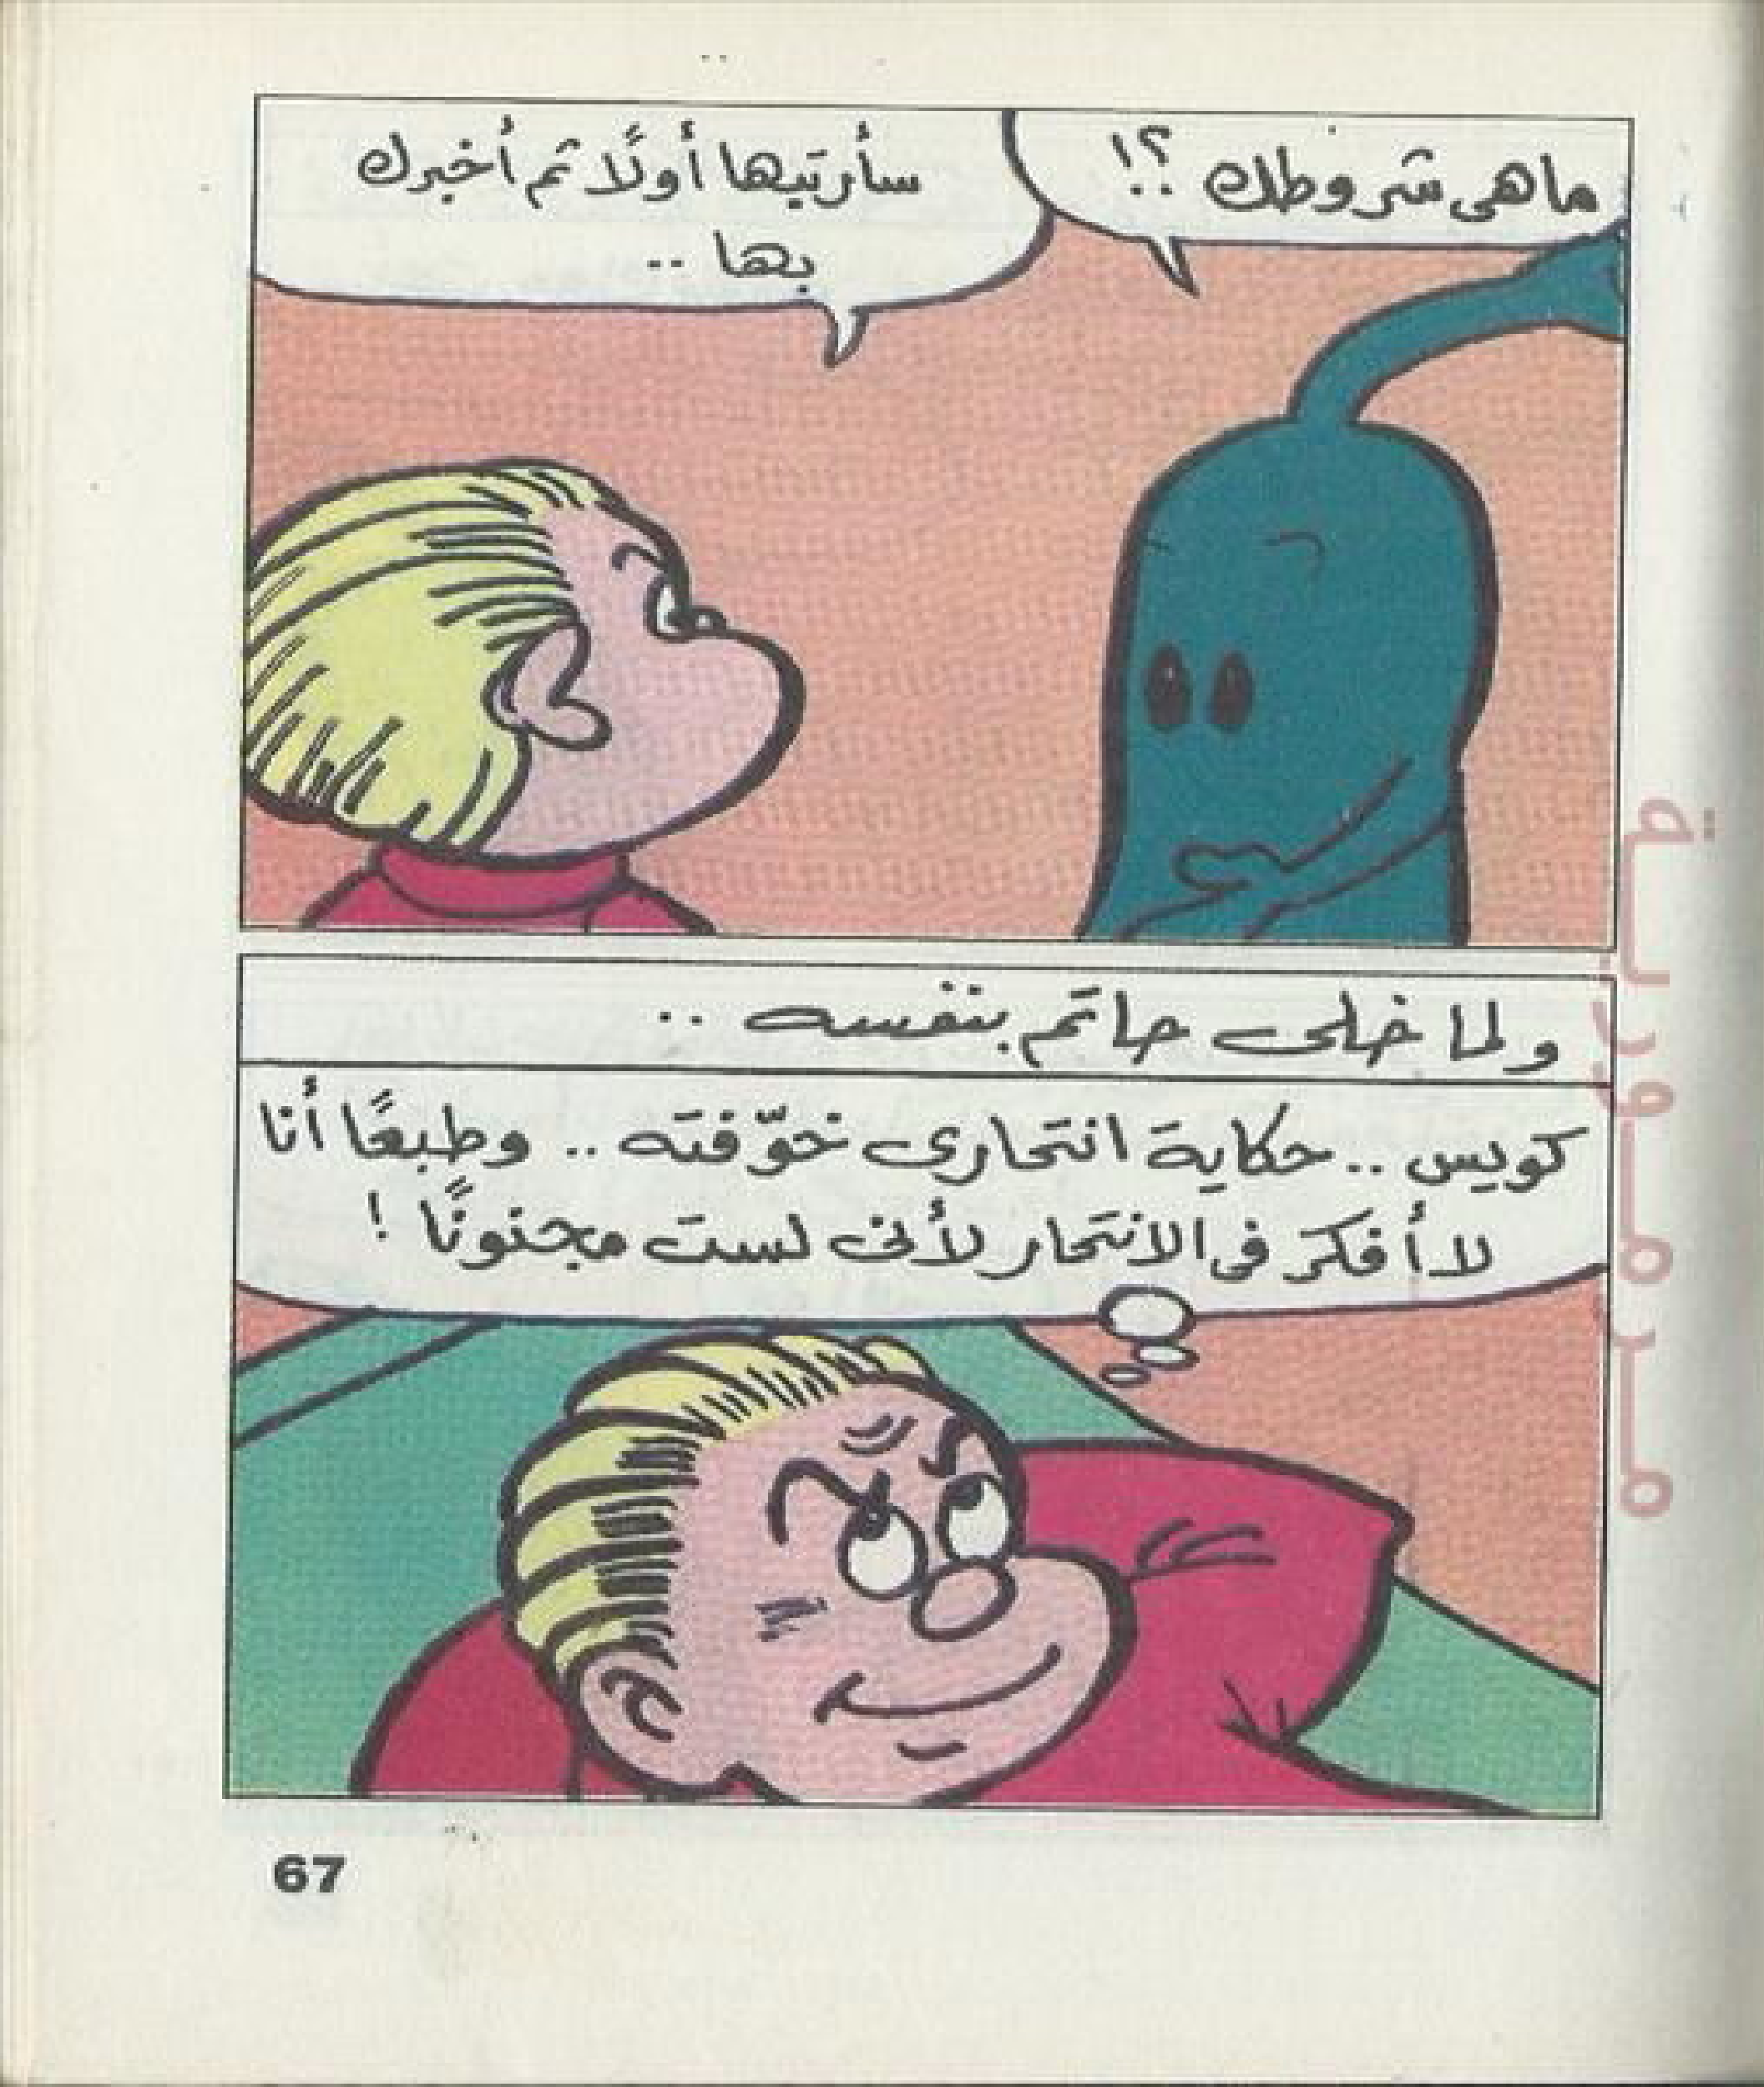 ما هى شروطك ؟!..
سأرتبها أولًا ثم أخبرك
بها ..
ولما خلى حاتم بنفسه ..
كويس .. حكاية انتحارى خوّفته .. وطبعًا أنا
لا أفكر فى الانتحار لأنى لست مجنونًا !
67